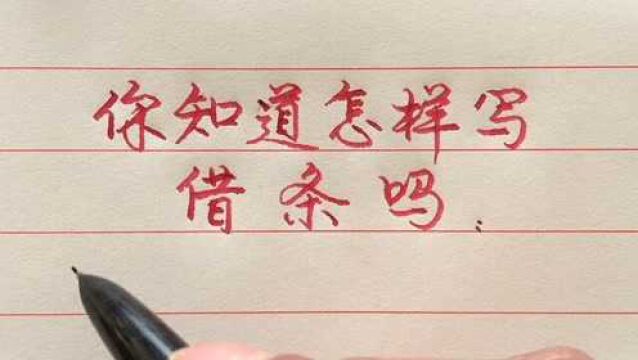 你知道怎样写
借条吗：